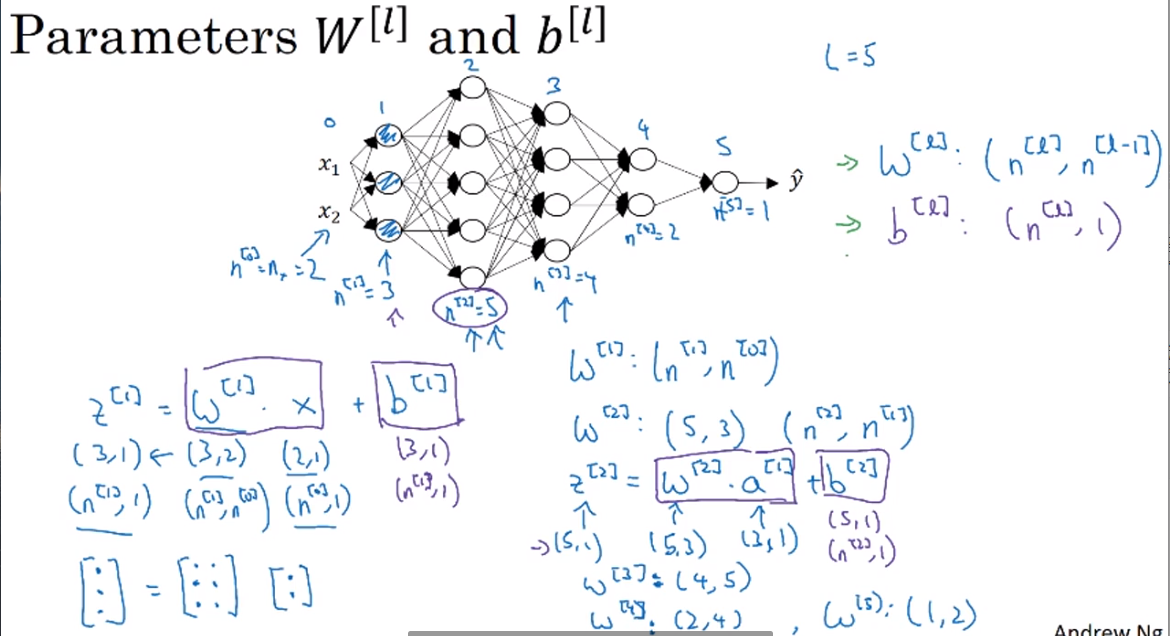 Parameters W^[l] and b^[l]
L = 5
0 1 2 3 4 5
x₁
x₂
ŷ
n^[0] = nₓ = 2
n^[1] = 3
n^[2] = 5
n^[3] = 4
n^[4] = 2
n^[5] = 1
→ W^[l] : (n^[l], n^[l-1])
→ b^[l] : (n^[l], 1)
z^[1] = W^[1] · x + b^[1]
(3,1) ← (3,2) (2,1) (3,1)
(n^[1],1) (n^[1],n^[0]) (n^[0],1) (n^[1],1)
[⋮] = [⋮⋮] [:]
W^[1] : (n^[1], n^[0])
W^[2] : (5,3) (n^[2], n^[1])
z^[2] = W^[2] · a^[1] + b^[2]
→ (5,1) (5,3) (3,1) (5,1)
(n^[2],1)
W^[3] : (4,5)
W^[4] : (2,4) , W^[5] : (1,2)
Andrew Ng